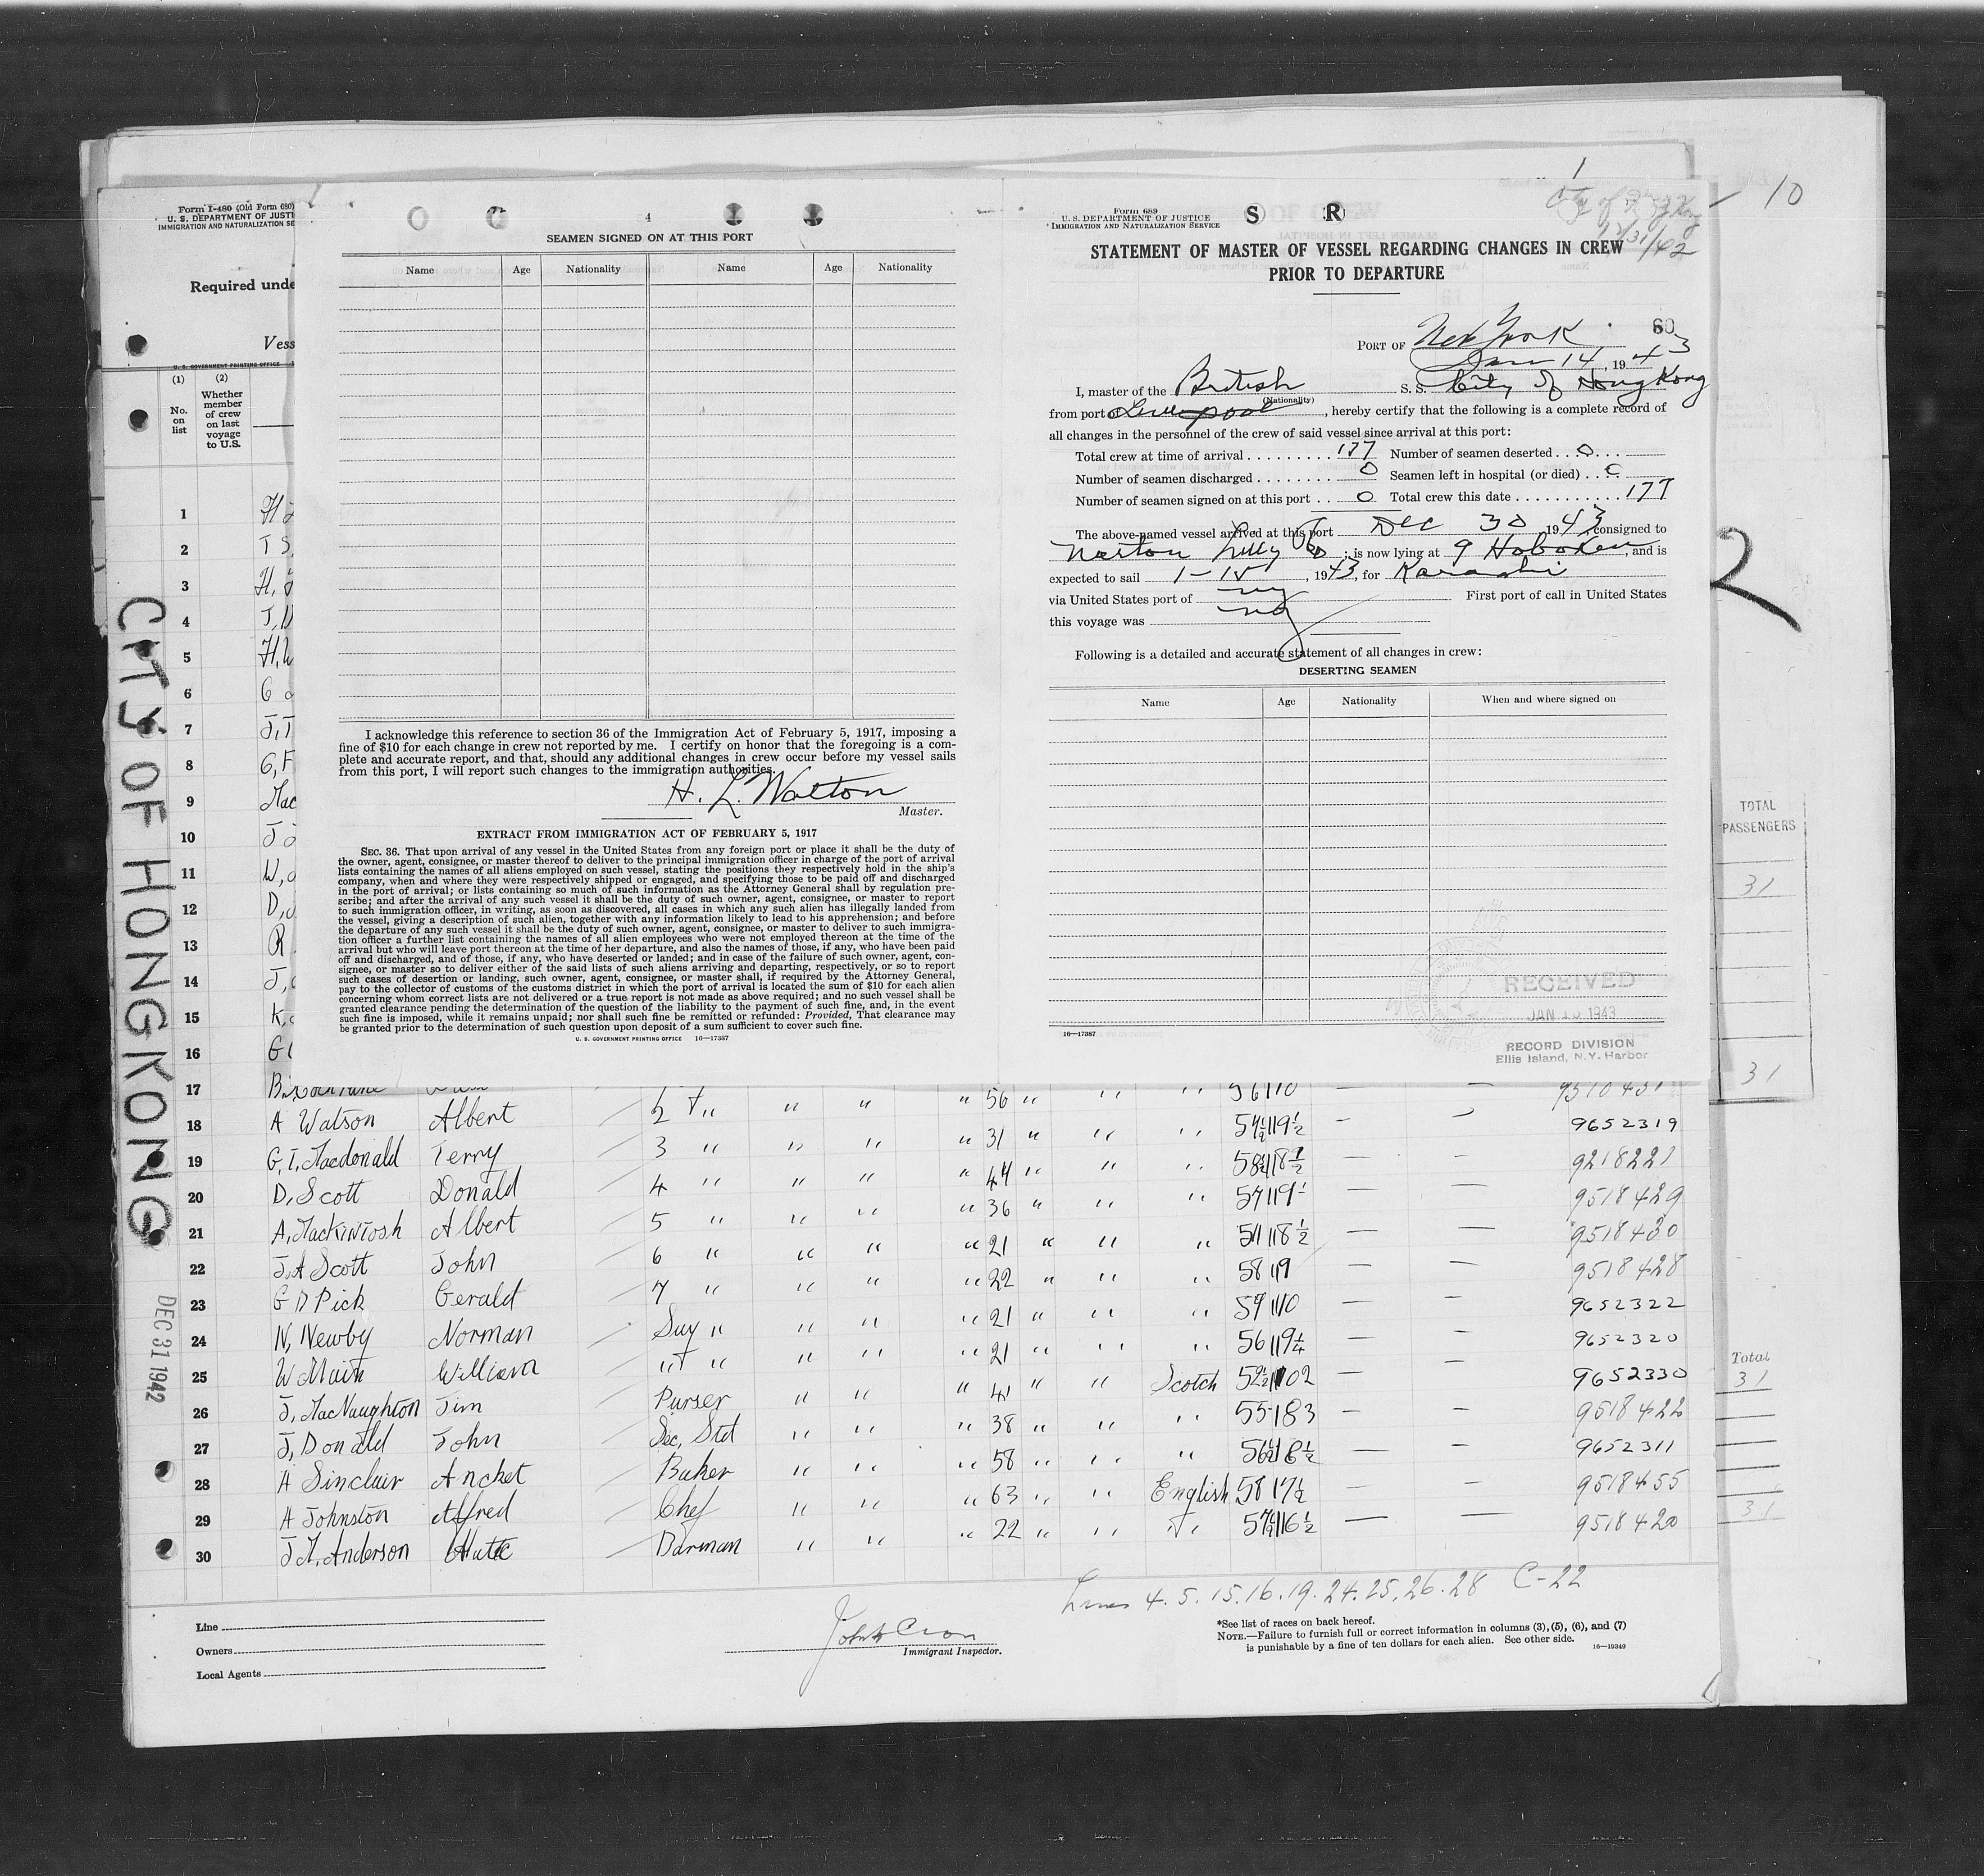 Form I-480 (Old Form 680)
U. S. DEPARTMENT OF JUSTI
IMMIGRATION AND NATURALIZATION SE
Required unde
Vess
U. S. GOVERNMENT PRINTING OFFICE
(1) (2)
No. on list
Whether member of crew on last voyage to U.S.
1
2
3
4
5
6
7
8
9
10
11
12
13
14
15
16
CITY OF HONGKONG
DEC 31 1942
4
SEAMEN SIGNED ON AT THIS PORT
Name Age Nationality Name Age Nationality
I acknowledge this reference to section 36 of the Immigration Act of February 5, 1917, imposing a
fine of $10 for each change in crew not reported by me. I certify on honor that the foregoing is a com-
plete and accurate report, and that, should any additional changes in crew occur before my vessel sails
from this port, I will report such changes to the immigration authorities.
H. L. Walton
Master.
EXTRACT FROM IMMIGRATION ACT OF FEBRUARY 5, 1917
SEC. 36. That upon arrival of any vessel in the United States from any foreign port or place it shall be the duty of
the owner, agent, consignee, or master thereof to deliver to the principal immigration officer in charge of the port of arrival
lists containing the names of all aliens employed on such vessel, stating the positions they respectively hold in the ship's
company, when and where they were respectively shipped or engaged, and specifying those to be paid off and discharged
in the port of arrival; or lists containing so much of such information as the Attorney General shall by regulation pre-
scribe; and after the arrival of any such vessel it shall be the duty of such owner, agent, consignee, or master to report
to such immigration officer, in writing, as soon as discovered, all cases in which any such alien has illegally landed from
the vessel, giving a description of such alien, together with any information likely to lead to his apprehension; and before
the departure of any such vessel it shall be the duty of such owner, agent, consignee, or master to deliver to such immigra-
tion officer a further list containing the names of all alien employees who were not employed thereon at the time of the
arrival but who will leave port thereon at the time of her departure, and also the names of those, if any, who have been paid
off and discharged, and of those, if any, who have deserted or landed; and in case of the failure of such owner, agent, con-
signee, or master so to deliver either of the said lists of such aliens arriving and departing, respectively, or so to report
such cases of desertion or landing, such owner, agent, consignee, or master shall, if required by the Attorney General,
pay to the collector of customs of the customs district in which the port of arrival is located the sum of $10 for each alien
concerning whom correct lists are not delivered or a true report is not made as above required; and no such vessel shall be
granted clearance pending the determination of the question of the liability to the payment of such fine, and, in the event
such fine is imposed, while it remains unpaid; nor shall such fine be remitted or refunded: Provided, That clearance may
be granted prior to the determination of such question upon deposit of a sum sufficient to cover such fine.
U. S. GOVERNMENT PRINTING OFFICE 16—17387
Form 689
U. S. DEPARTMENT OF JUSTICE
IMMIGRATION AND NATURALIZATION SERVICE
S R
1
City of Hong Kong
12/31/42
10
STATEMENT OF MASTER OF VESSEL REGARDING CHANGES IN CREW
PRIOR TO DEPARTURE
60
PORT OF New York
Jan 14, 1943
I, master of the British S. S. City of Hong Kong
(Nationality)
from port Liverpool, hereby certify that the following is a complete record of
all changes in the personnel of the crew of said vessel since arrival at this port:
Total crew at time of arrival 177 Number of seamen deserted 0
Number of seamen discharged 0 Seamen left in hospital (or died) 0
Number of seamen signed on at this port 0 Total crew this date 177
The above-named vessel arrived at this port Dec 30 1943, consigned to
Norton Lilly Co; is now lying at 9 Hoboken, and is
expected to sail 1-15, 1943, for Karachi
via United States port of ny First port of call in United States
this voyage was ny
Following is a detailed and accurate statement of all changes in crew:
DESERTING SEAMEN
Name Age Nationality When and where signed on
RECEIVED
JAN 15 1943
RECORD DIVISION
Ellis Island, N.Y. Harbor
16—17387
2
TOTAL PASSENGERS
31
31
17 56 " " " 9510431
18 A Watson Albert 2 " " " " 31 " " " — 9652319
19 G, T, Macdonald Terry 3 " " " " 44 " " " — — 9218221
20 D, Scott Donald 4 " " " " 36 " " " 57 119 — — 9518429
21 A, Mackintosh Albert 5 " " " " 21 " " " — — 9518430
22 J. A Scott John 6 " " " " 22 " " " 58 119 9518428
23 G D Pick Gerald 7 " " " " 21 " " " — — 9652322
24 N, Newby Norman Sur " " " " 21 " " " — — 9652320
25 W Muir William " " " " " 41 " " Scotch — — 9652330
26 J, MacNaughton Jim Purser " " " 38 " " " 55 183 — — 9518422
27 J, Donald John Sec, Std " " " 58 " " " — — 9652311
28 A Sinclair Ancket Baker " " " 63 " " English 58 17½ — — 9518455
29 A Johnston Alfred Chef " " " 22 " " " — — 9518420
30 J M, Anderson Barman " "
Total
31
31
Lines 4. 5. 15. 16. 19. 24. 25. 26. 28 C-22
Line
Owners
Local Agents
John Cron
Immigrant Inspector.
*See list of races on back hereof.
NOTE.—Failure to furnish full or correct information in columns (3), (5), (6), and (7)
is punishable by a fine of ten dollars for each alien. See other side. 16—19349